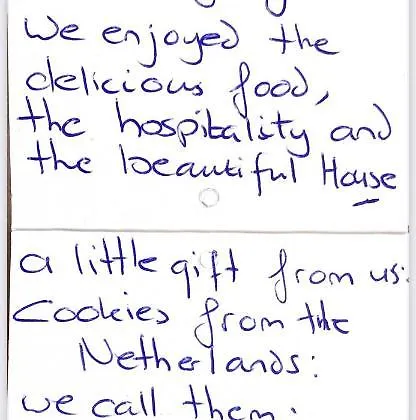 We enjoyed the
delicious food,
the hospitality and
the beautiful House
a little gift from us:
Cookies from the
Netherlands:
we call them: